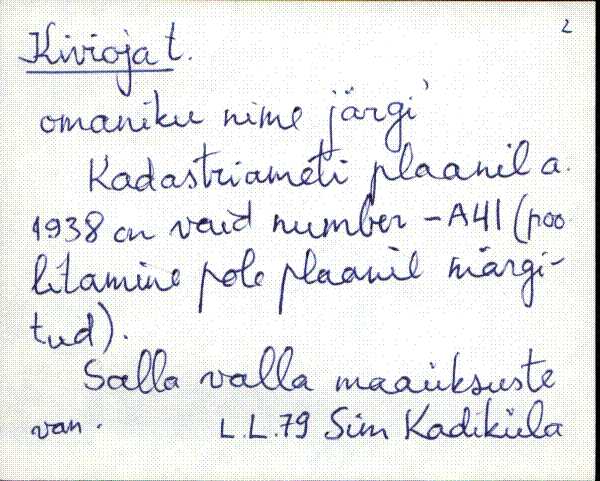 2
Kivioja t.
omaniku nime järgi
Kadastriameti plaanil a.
1938 on vaid number - A41 (poo
litamine pole plaanil märgi-
tud).
Salla valla maaüksuste
van. L.L.79 Sim Kadiküla